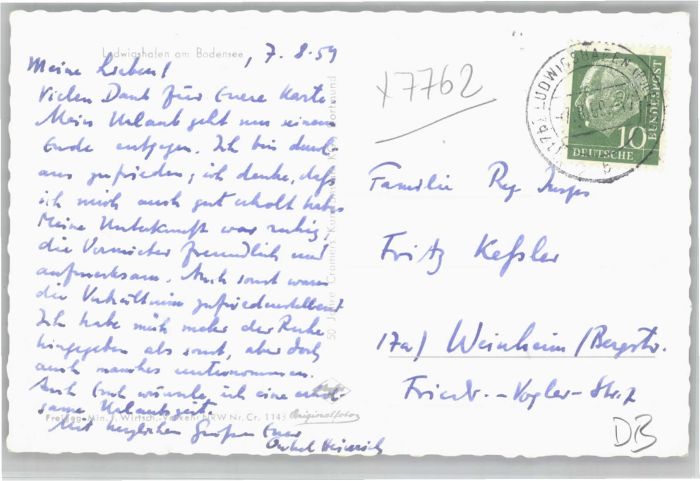 Ludwigshafen am Bodensee
, 7. 8. 59
Meine Lieben!
Vielen Dank für Euere Karte.
Mein Urlaub geht nun seinem
Ende entgegen. Ich bin durch-
aus zufrieden; ich denke, daß
ich mich auch gut erholt habe.
Meine Unterkunft war ruhig,
die Vermieter freundlich und
aufmerksam. Auch sonst waren
die Verhältnisse zufriedenstellend.
Ich habe mich mehr der Ruhe
hingegeben als sonst, aber doch
auch manches unternommen.
Auch Euch wünsche ich eine erhol-
same Urlaubszeit.
Mit herzlichen Grüßen Euer
Onkel Heinrich
Freigeg. Min. f. Wirtsch. Verkehr NRW Nr. Cr. 1143 Originalfoto
50 Jahre Cramers Kunst Dortmund
x7762
LUDWIGSHAFEN
b
10
DEUTSCHE
BUNDESPOST
Familie Reg
Fritz Keßler
17a) Weinheim/Bergstr.
Friedr.-Vogler-Str. 7
DB